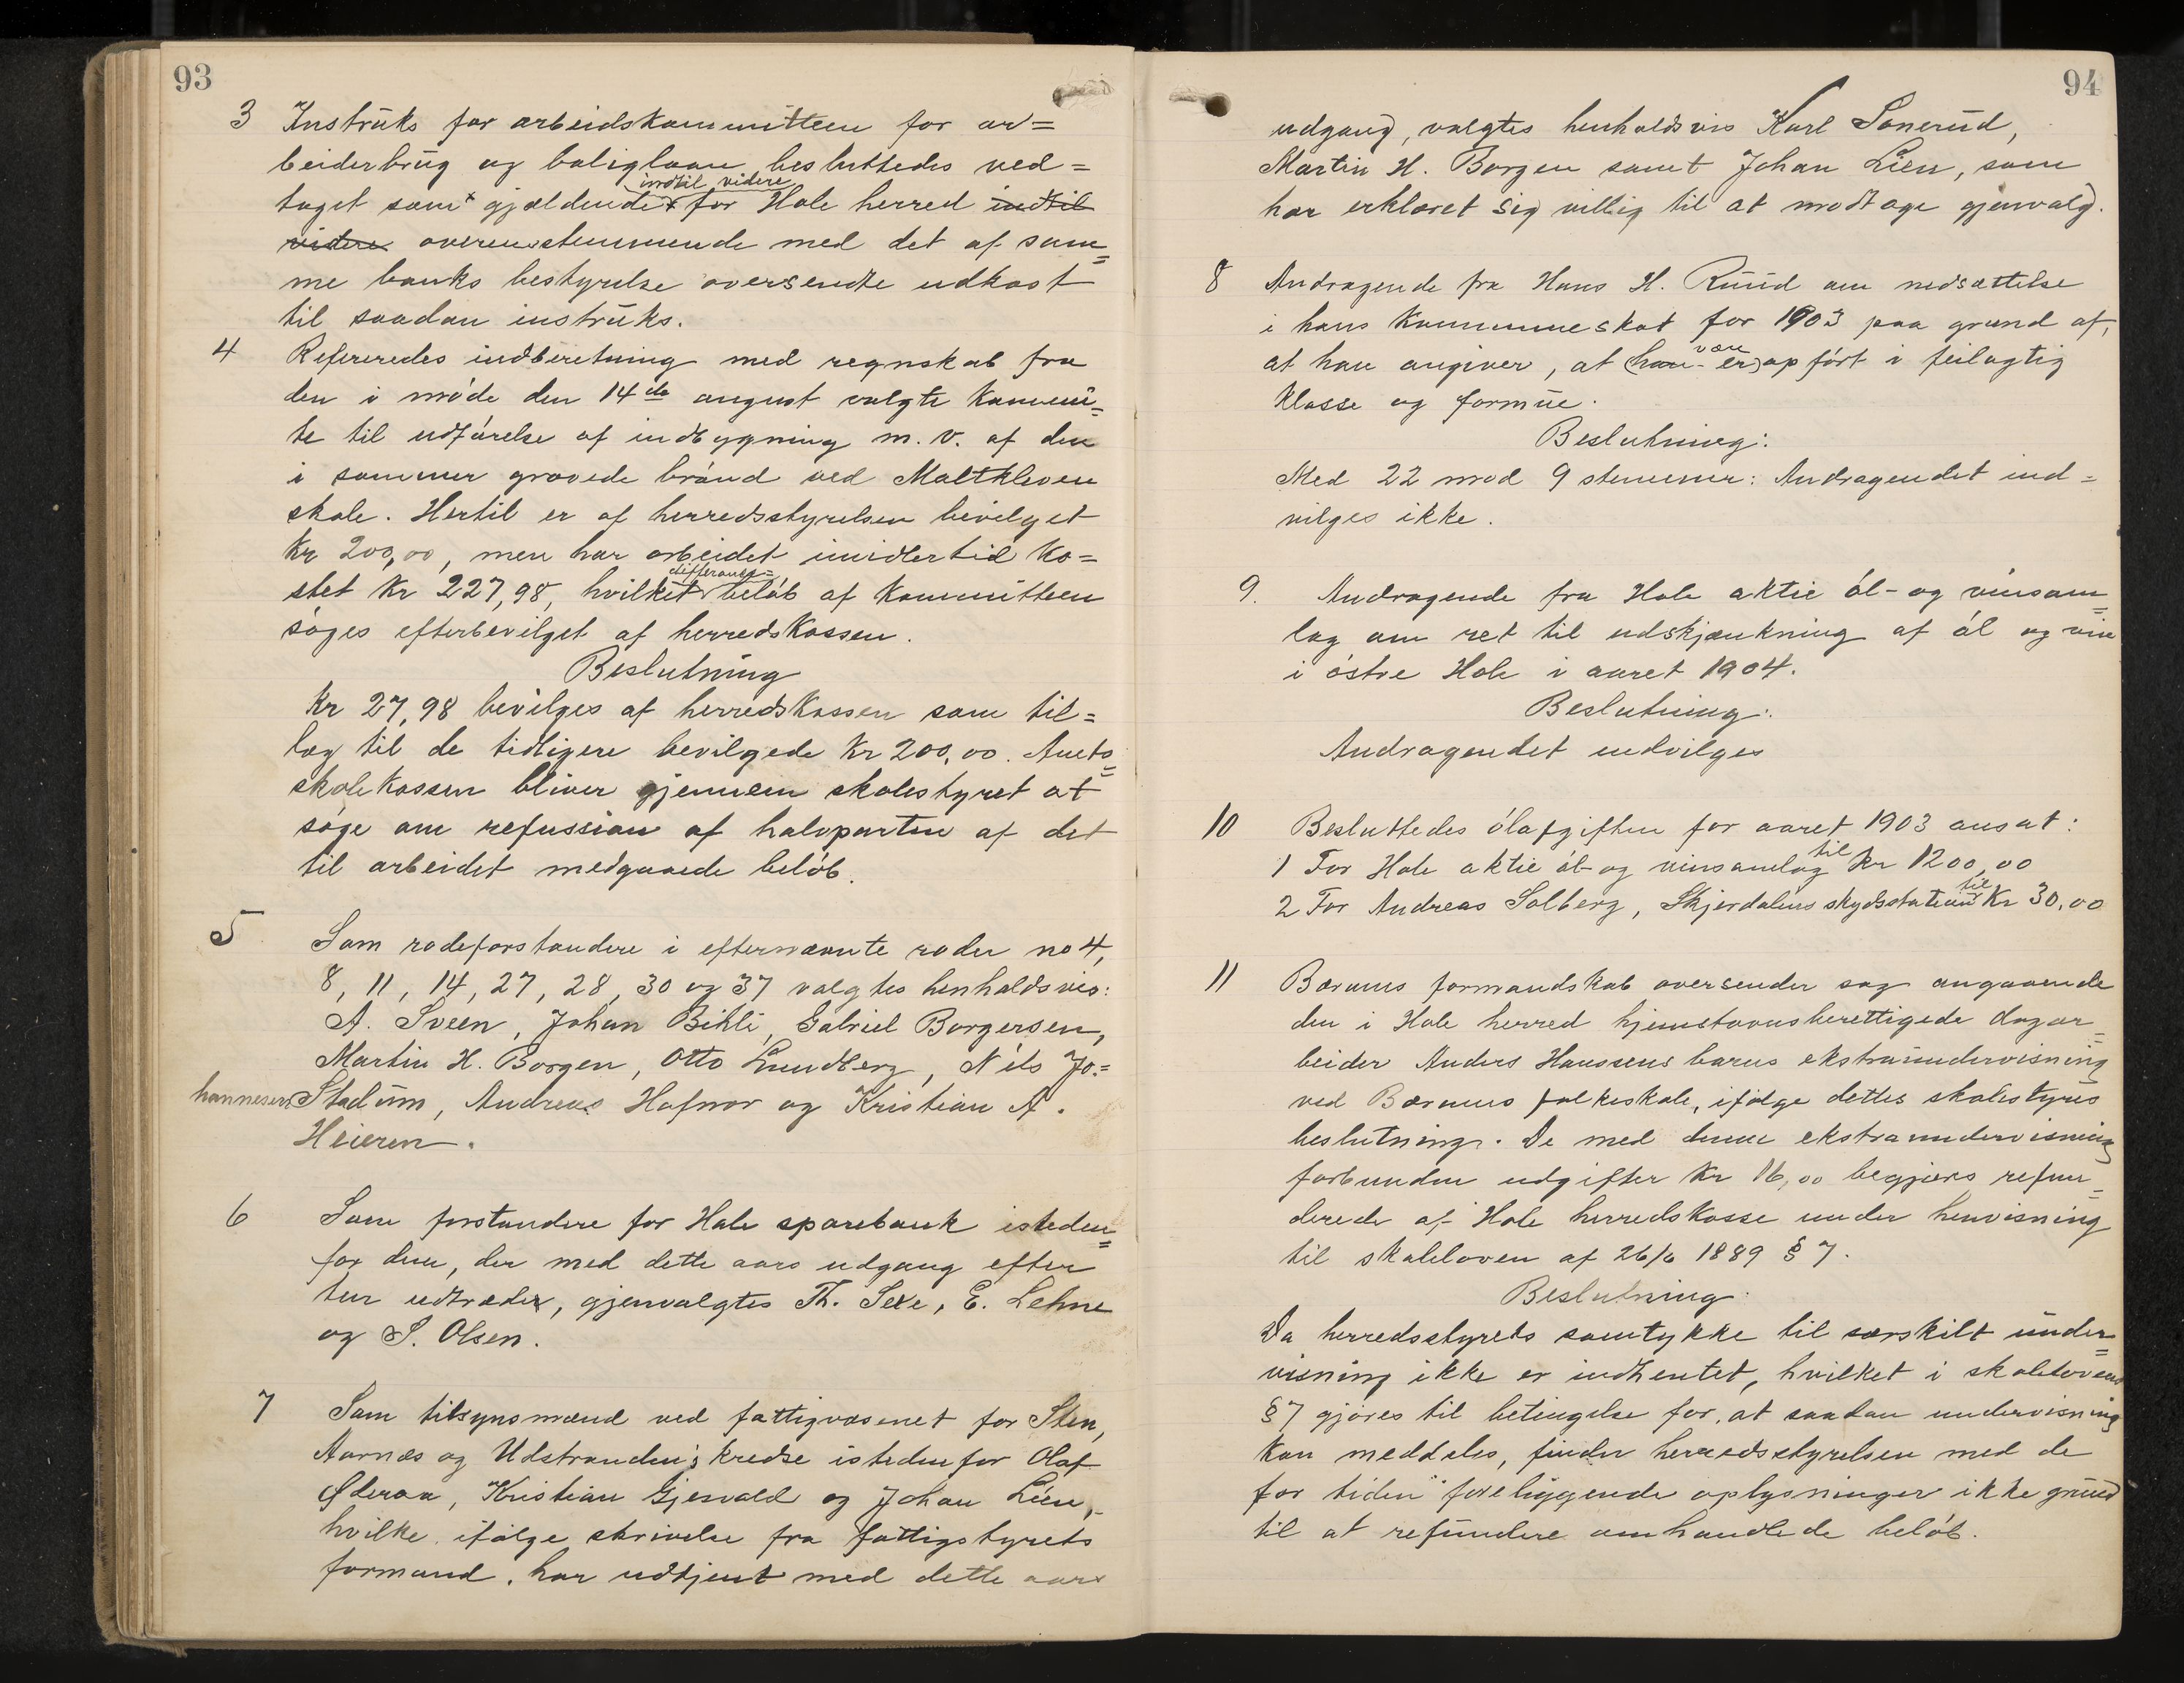 93
3 Instruks for arbeidskommitteen for ar=
beiderbrug og boliglaan besluttedes ved=
indtil videre
taget som gjældende for Hole herred indtil
videre overensstemmende med det af sam=
me banks bestyrelse oversendte udkast
til saadan instruks.
4 Refereredes indberetning med regnskab fra
den i møde den 14de august valgte kommi=
te til udførelse af indbygning m.v. af den
i sommer gravede brønd ved Maltkleven
skole. Hertil er af herredsstyrelsen bevilget
Kr 200,00, men har arbeidet imidlertid ko=
differance=
stet Kr 227,98, hvilket beløb af kommitteen
søges efterbevilget af herredskassen.
Beslutning
Kr 27,98 bevilges af herredskassen som til=
læg til de tidligere bevilgede Kr 200,00. Amts=
skolekassen bliver gjennem skolestyret at
søge om refussion af halvparten af det
til arbeidet medgaaede beløb.
5 Som rodeforstandere i efternævnte roder no 4,
8, 11, 14, 27, 28, 30 og 37 valgtes henholdsvis:
A. Sveen, Johan Bihli, Gabriel Borgersen,
Martin H. Borgen, Otto Lundberg, Nils Jo=
hannesen Stadum, Andreas Hafnor og Kristian A.
Heieren.
6 Som forstandere for Hole sparebank isteden=
for dem, der med dette aars udgang efter
tur udtræder, gjenvalgtes Th. Sexe, E. Lehne
og S. Olsen.
7 Som tilsynsmænd ved fattigvæsenet for Sten,
Aarnæs og Utstranden's kredse istedenfor Olaf
Øderaa, Kristian Gjesvald og Johan Lien,
hvilke ifølge skrivelse fra fattigstyrets
formand, har udtjent med dette aars
94
udgang, valgtes henholdsvis Karl Sønerud,
Martin H. Borgen samt Johan Lien, som
har erklæret sig villig til at modtage gjenvalg.
8 Andragende fra Hans H. Ruud om nedsættelse
i hans kommuneskat for 1903 paa grund af,
være
at han angiver, at (han er) opført i feilagtig
klasse og formue.
Beslutning:
Med 22 mod 9 stemmer: Andragendet ind=
vilges ikke.
9. Andragende fra Hole aktie øl- og vinsam=
lag om ret til udskjænkning af øl og vin
i østre Hole i aaret 1904.
Beslutning:
Andragendet indvilges
10 Besluttedes ølafgiften for aaret 1903 ansat:
til
1 For Hole aktie øl- og vinsamlag Kr 1200,00
til
2 For Andreas Solberg, Skjerdalens skydsstation Kr 30,00
11 Bærums formandskab oversender sag angaaende
den i Hole herred hjemstavnsberettigede dagar=
beider Anders Hanssens barns ekstraundervisning
ved Bærums folkeskole, ifølge dettes skolestyres
beslutning. De med denne ekstraundervisning
forbundne udgifter Kr 16,00 begjæres refun=
derede af Hole herredskasse under henvisning
til skoleloven af 26/6 1889 § 7.
Beslutning:
Da herredsstyrets samtykke til særskilt under=
visning ikke er indhentet, hvilket i skolelovens
§ 7 gjøres til betingelse for, at saadan undervisning
kan meddeles, finder herredsstyrelsen med de
for tiden foreliggende oplysninger ikke grund
til at refundere omhandlede beløb.